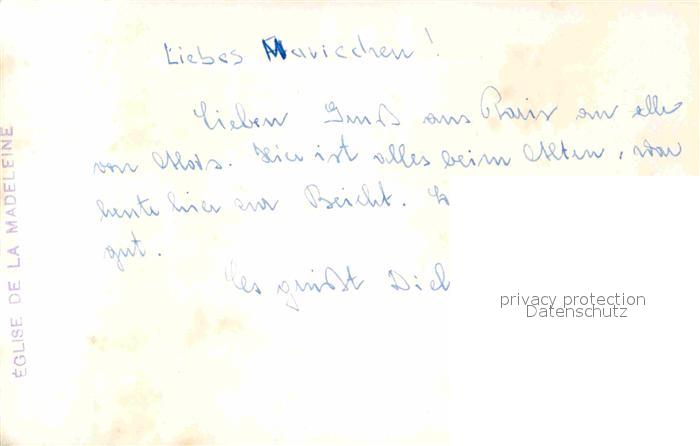 Liebes Mariechen!
Lieben Gruß aus Paris an alle
von Alois. Hier ist alles beim Alten, war
heute hier zur Beicht.
gut.
Es grüßt Dich
ÉGLISE DE LA MADELEINE
privacy protection
Datenschutz